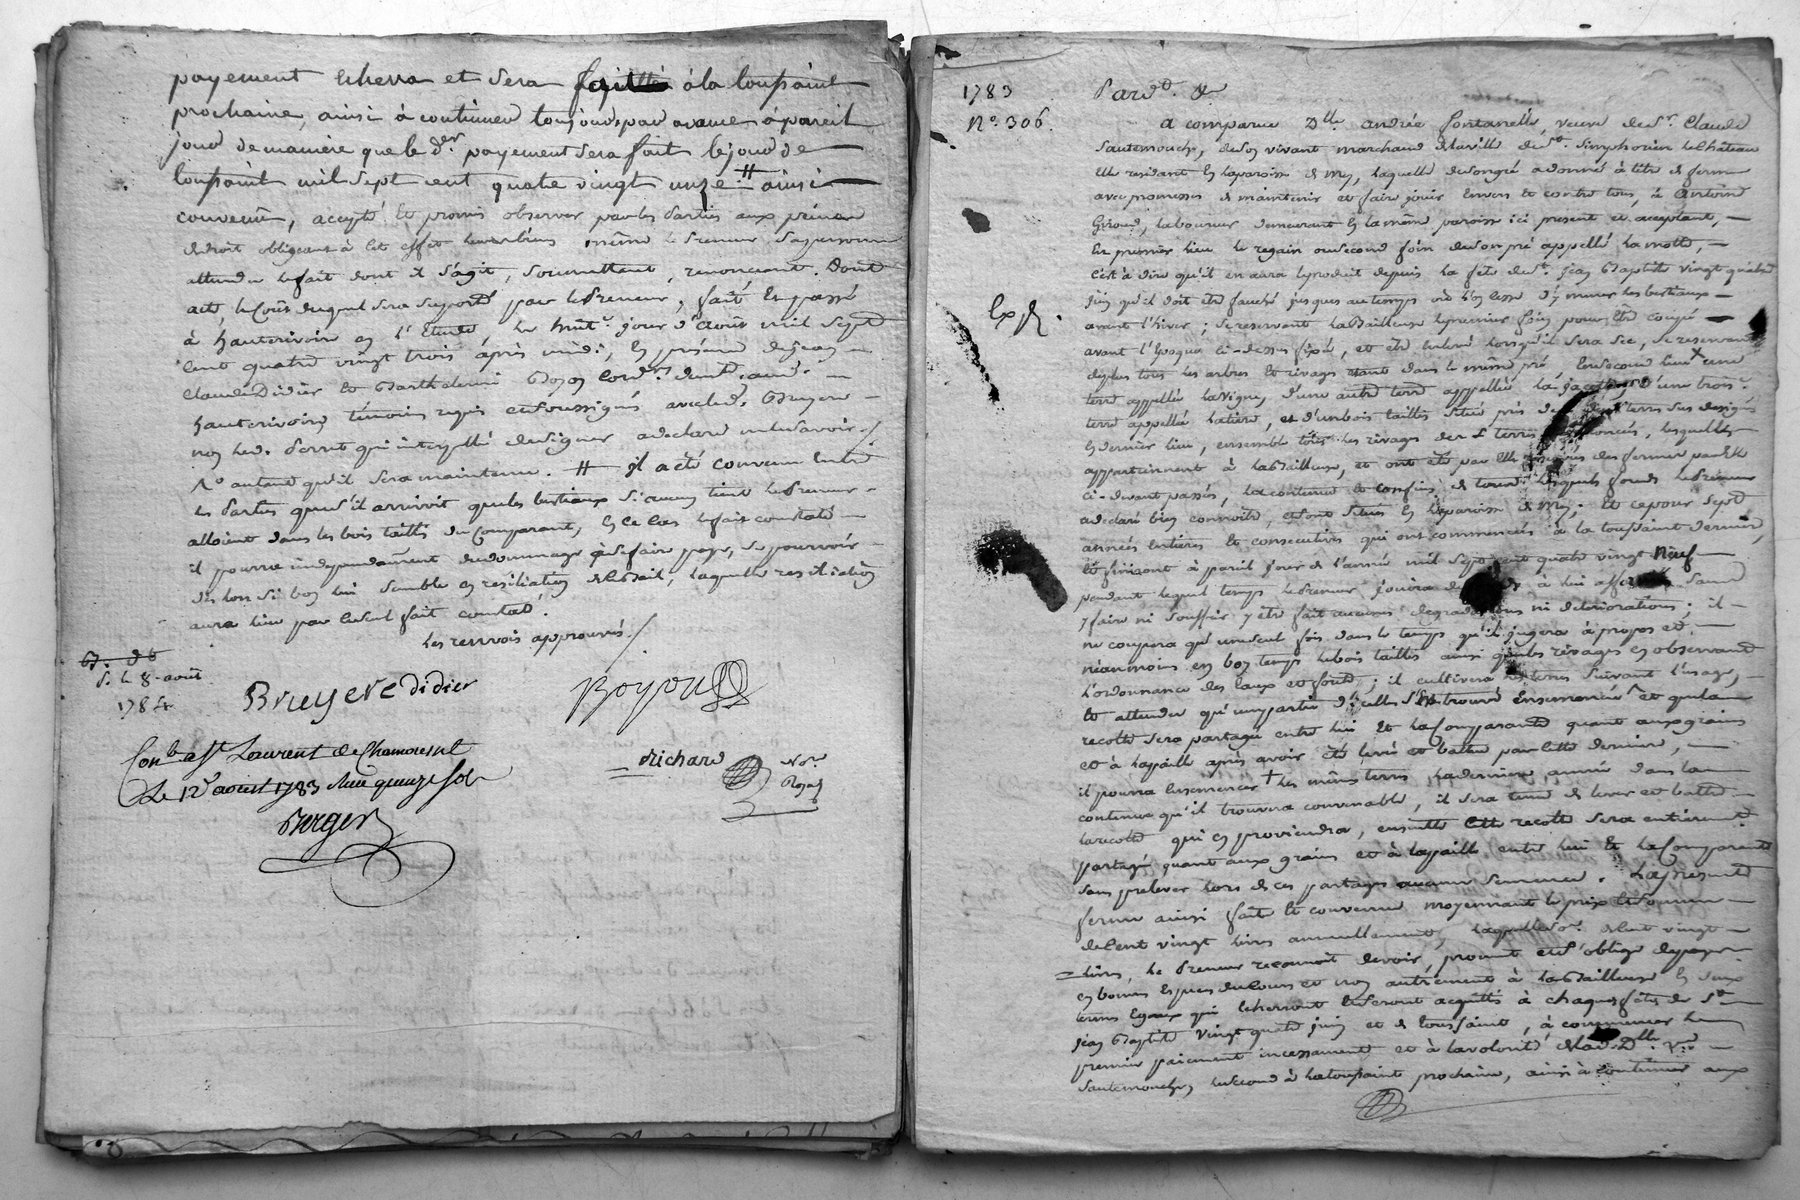 payement echerra et sera faitte à la toussaint
prochaine, ainsi à continuer toujours par avance à pareil
jour de maniere que le der. payement sera fait le jour de
toussaint mil sept cent quatre vingt unze # ainsi
convenu, accepté et promis observer par les parties aux peines
de droit obligeant à cet effet leurs biens même le preneur sa personne
attendu le fait dont il s'agit, soumettant, renonceant. Dont
acte, le cout duquel sera suporté par le preneur, fait et passé
à hauterivoire en l'Etude, le huit.e jour d'août mil sept
cent quatre vingt trois après midi, en présence de jean
Claude Didier et Barthelemi Boyon
hauterivoire temoins requis et soussignés avec led. Bruyere
non led. qui interpellé de signer a declaré ne le savoir /
autant qu'il sera maintenu. # il a été convenu entre
les parties que s'il arrivoit que les bestiaux d'aucun tient le preneur
alloient dans les bois taillis du comparant, en ce cas le fait constaté
il pourra independament du dommage se faire payer, se pourvoir
dès lors si bon lui semble en resiliation du bail, laquelle resiliation
aura lieu par le seul fait constaté.
les renvois approuvés. /
S. le 8. août
1784
Bruyere didier
Boyon
Con.lé à St Laurent de Chamousset
Le 12 aoust 1783 Reçu quinze sols
Berger
Richard
No.re
Royal
1783
N.o 306.
Pard.t &
a comparue D.lle andrée fontanelle, veuve de S.r Claude
Sautemouche, de son vivant marchand de la ville de S.t Simphorien le château
elle residant en la paroisse de Mys, laquelle de son gré a donné à titre de ferme
avec promesses de maintenir et faire jouir envers et contre tous, à Antoine
Giroud, laboureur demeurant en la même paroisse ici present et acceptant,
En premier lieu le regain ou second foin de son pré appellé la motte,
c'est à dire qu'il en aura le produit depuis la fête de S.t jean Baptiste vingt quatre
juin qu'il doit être fauché jusques au temps où l'on cesse d'y mener les bestiaux
avant l'hiver ; se reservant la Bailleuse le premier foin pour être coupé
Exp.é.
avant l'Epoque ci-dessus fixée, et être enlevé lorsqu'il sera sec, se reservant
de plus tous les arbres et rivages etant dans le même pré, En second lieu x une
terre appellée la vigne, d'une autre terre appellée la d'une trois.e
terre appellée la tiere, et d'un bois taillis situé près de terres sus designées
En dernier lieu, ensemble tous les rivages des terres enoncées, lesquelles
appartiennent à la Bailleuse, et ont été par elle des fermes par elle
ci-devant passés, la contenue et confins de tous lesquels fonds le Preneur
a declaré bien connoitre, et sont situés en la paroisse de Mys ; Et ce pour sept
années entieres et consecutives qui ont commencées à la toussaint derniere,
et finiront à pareil jour de l'année mil sept cent quatre vingt Neuf
pendant lequel temps le Preneur jouira des fonds à lui affermés sans
y faire ni souffrir y être fait aucunes degradations ni deteriorations ; il
ne coupera qu'une seul fois dans le temps qu'il jugera à propos et
néanmoins en bon temps le bois taillis ainsi que les rivages en observant
l'ordonnance des Eaux et forets ; il cultivera les terres suivant l'usage,
Et attendu qu'une partie d'icelles s'est trouvé ensemencée et que la
recolte sera partagée entre lui Et la Comparante quant aux grains
et à la paille après avoir été levée et battue par cette derniere,
il pourra ensemencer † les mêmes terres la derniere année dans la
contenue qu'il trouvera convenable, il sera tenu de lever et battre
la recolte qui en proviendra, ensuitte cette recolte sera entierement
partagée quant aux grains et à la paille entre lui Et la Comparante
sans prelever lors de ces partages aucune semence. La presente
ferme ainsi faite et convenue moyennant le prix et somme
de Cent vingt livres annuellement, laquelle so.e de Cent vingt
livres le Preneur reconnoit devoir, promet et s'oblige de payer
en bonnes Especes de cours et non autrement à la Bailleuse En deux
termes Egaux qui echerront et seront acquittés à chaques fêtes de S.t
jean Baptiste vingt quatre juin et de toussaint, à commencer le
premier paiement incessament et à la volonté de lad. D.lle v.ve
Sautemouche, le second à la toussaint prochaine, ainsi à continuer aux